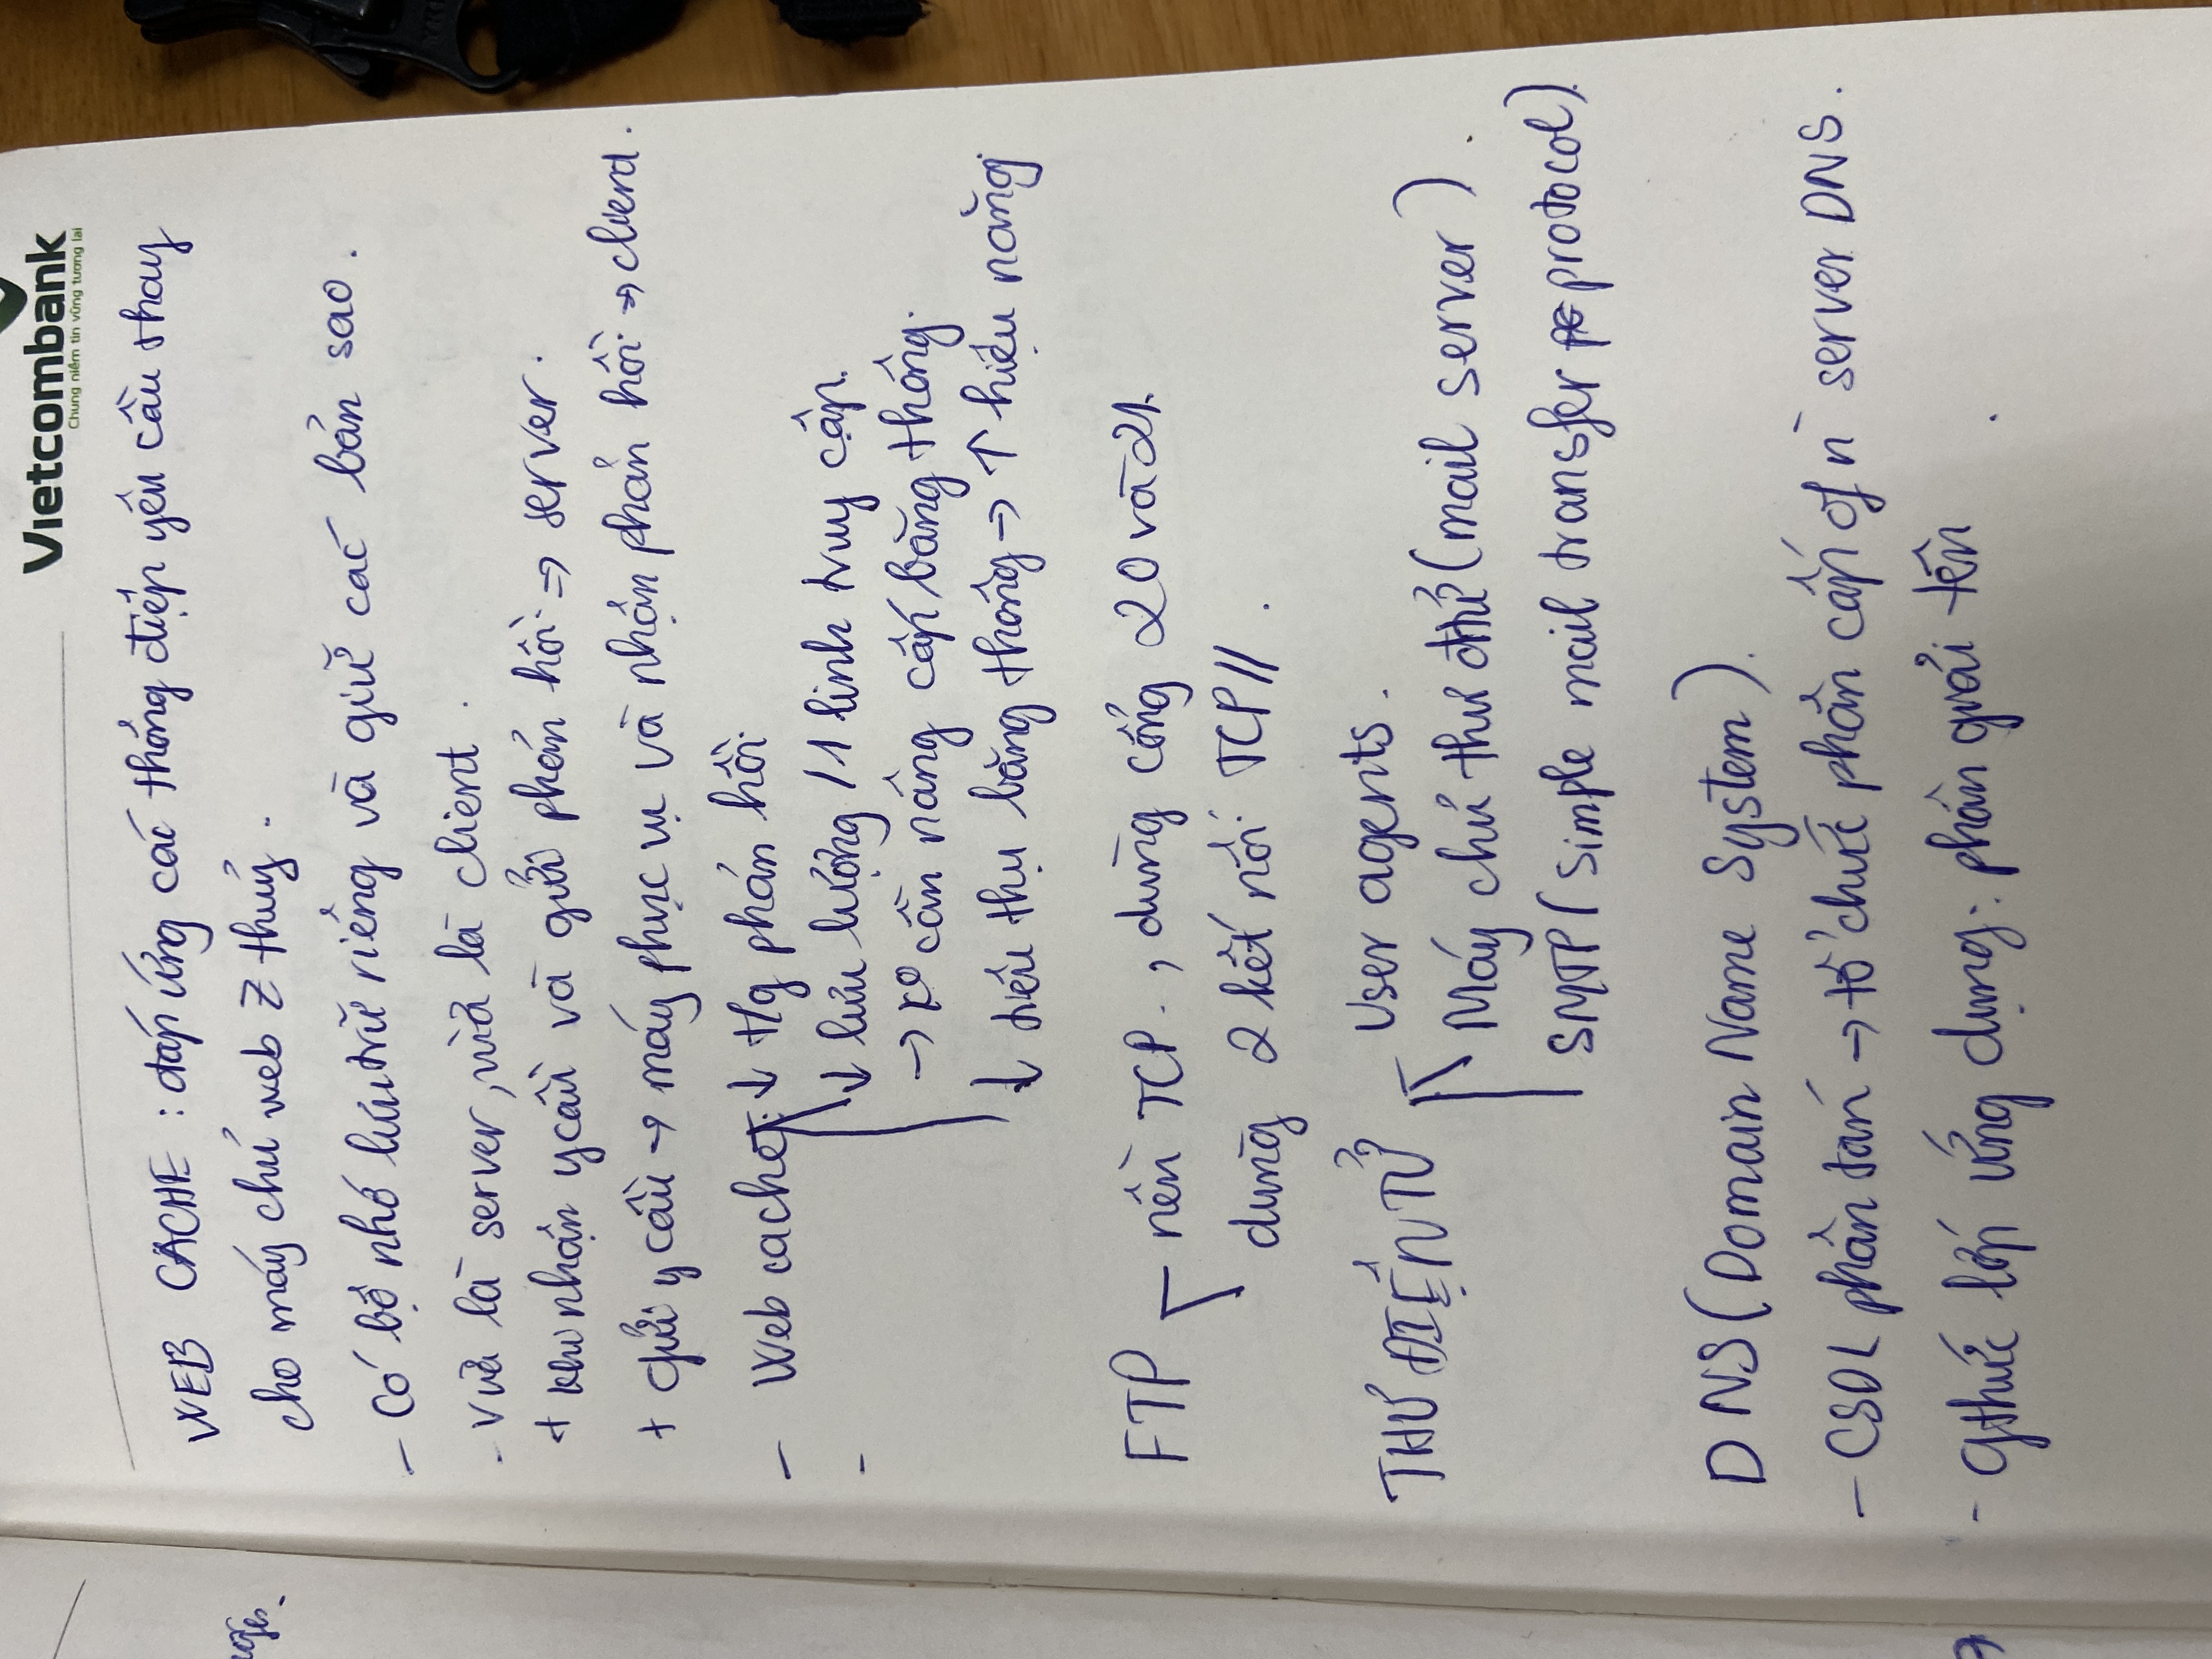 Vietcombank
Chung niềm tin vững tương lai
WEB CACHE : đáp ứng các thông điệp yêu cầu thay
cho máy chủ web Z thuỷ.
- Có bộ nhớ lưu trữ riêng và giữ các bản sao.
- vừa là server, vừa là client.
+ khi nhận ycầu và gửi phản hồi => server.
+ gửi ycầu → máy phục vụ và nhận phản hồi → client.
- Web cache: ↓ t/g phản hồi
- ↓ lưu lượng / 1 link truy cập.
→ k° cần nâng cấp băng thông.
↓ tiêu thụ băng thông → ↑ hiệu năng
FTP - nền TCP. , dùng cổng 20 và 21.
dùng 2 kết nối TCP //.
THƯ ĐIỆN TỬ - User agents.
Máy chủ thư đtử (mail server).
SMTP (Simple mail transfer protocol).
DNS (Domain Name System).
- CSDL phân tán → tổ chức phân cấp of n` server DNS.
- gthức lớp ứng dụng: phân giải tên.